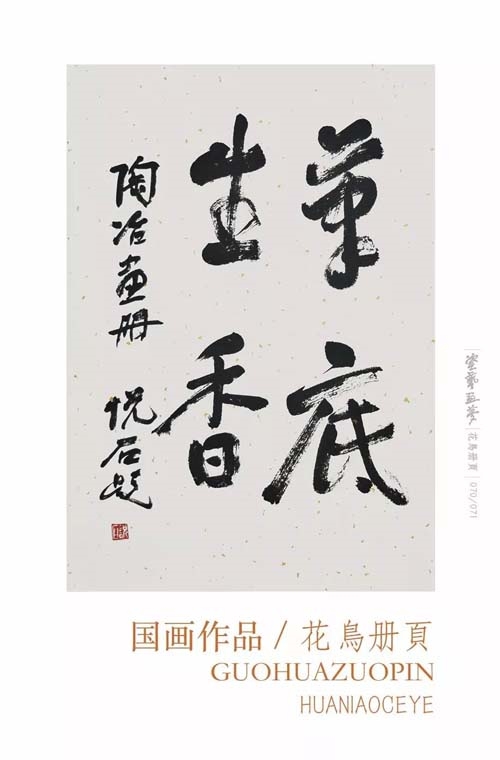 筆底
生香
陶冶畫册 悦石题
花鳥册頁
070/071
国画作品 / 花鳥册頁
GUOHUAZUOPIN
HUANIAOCEYE